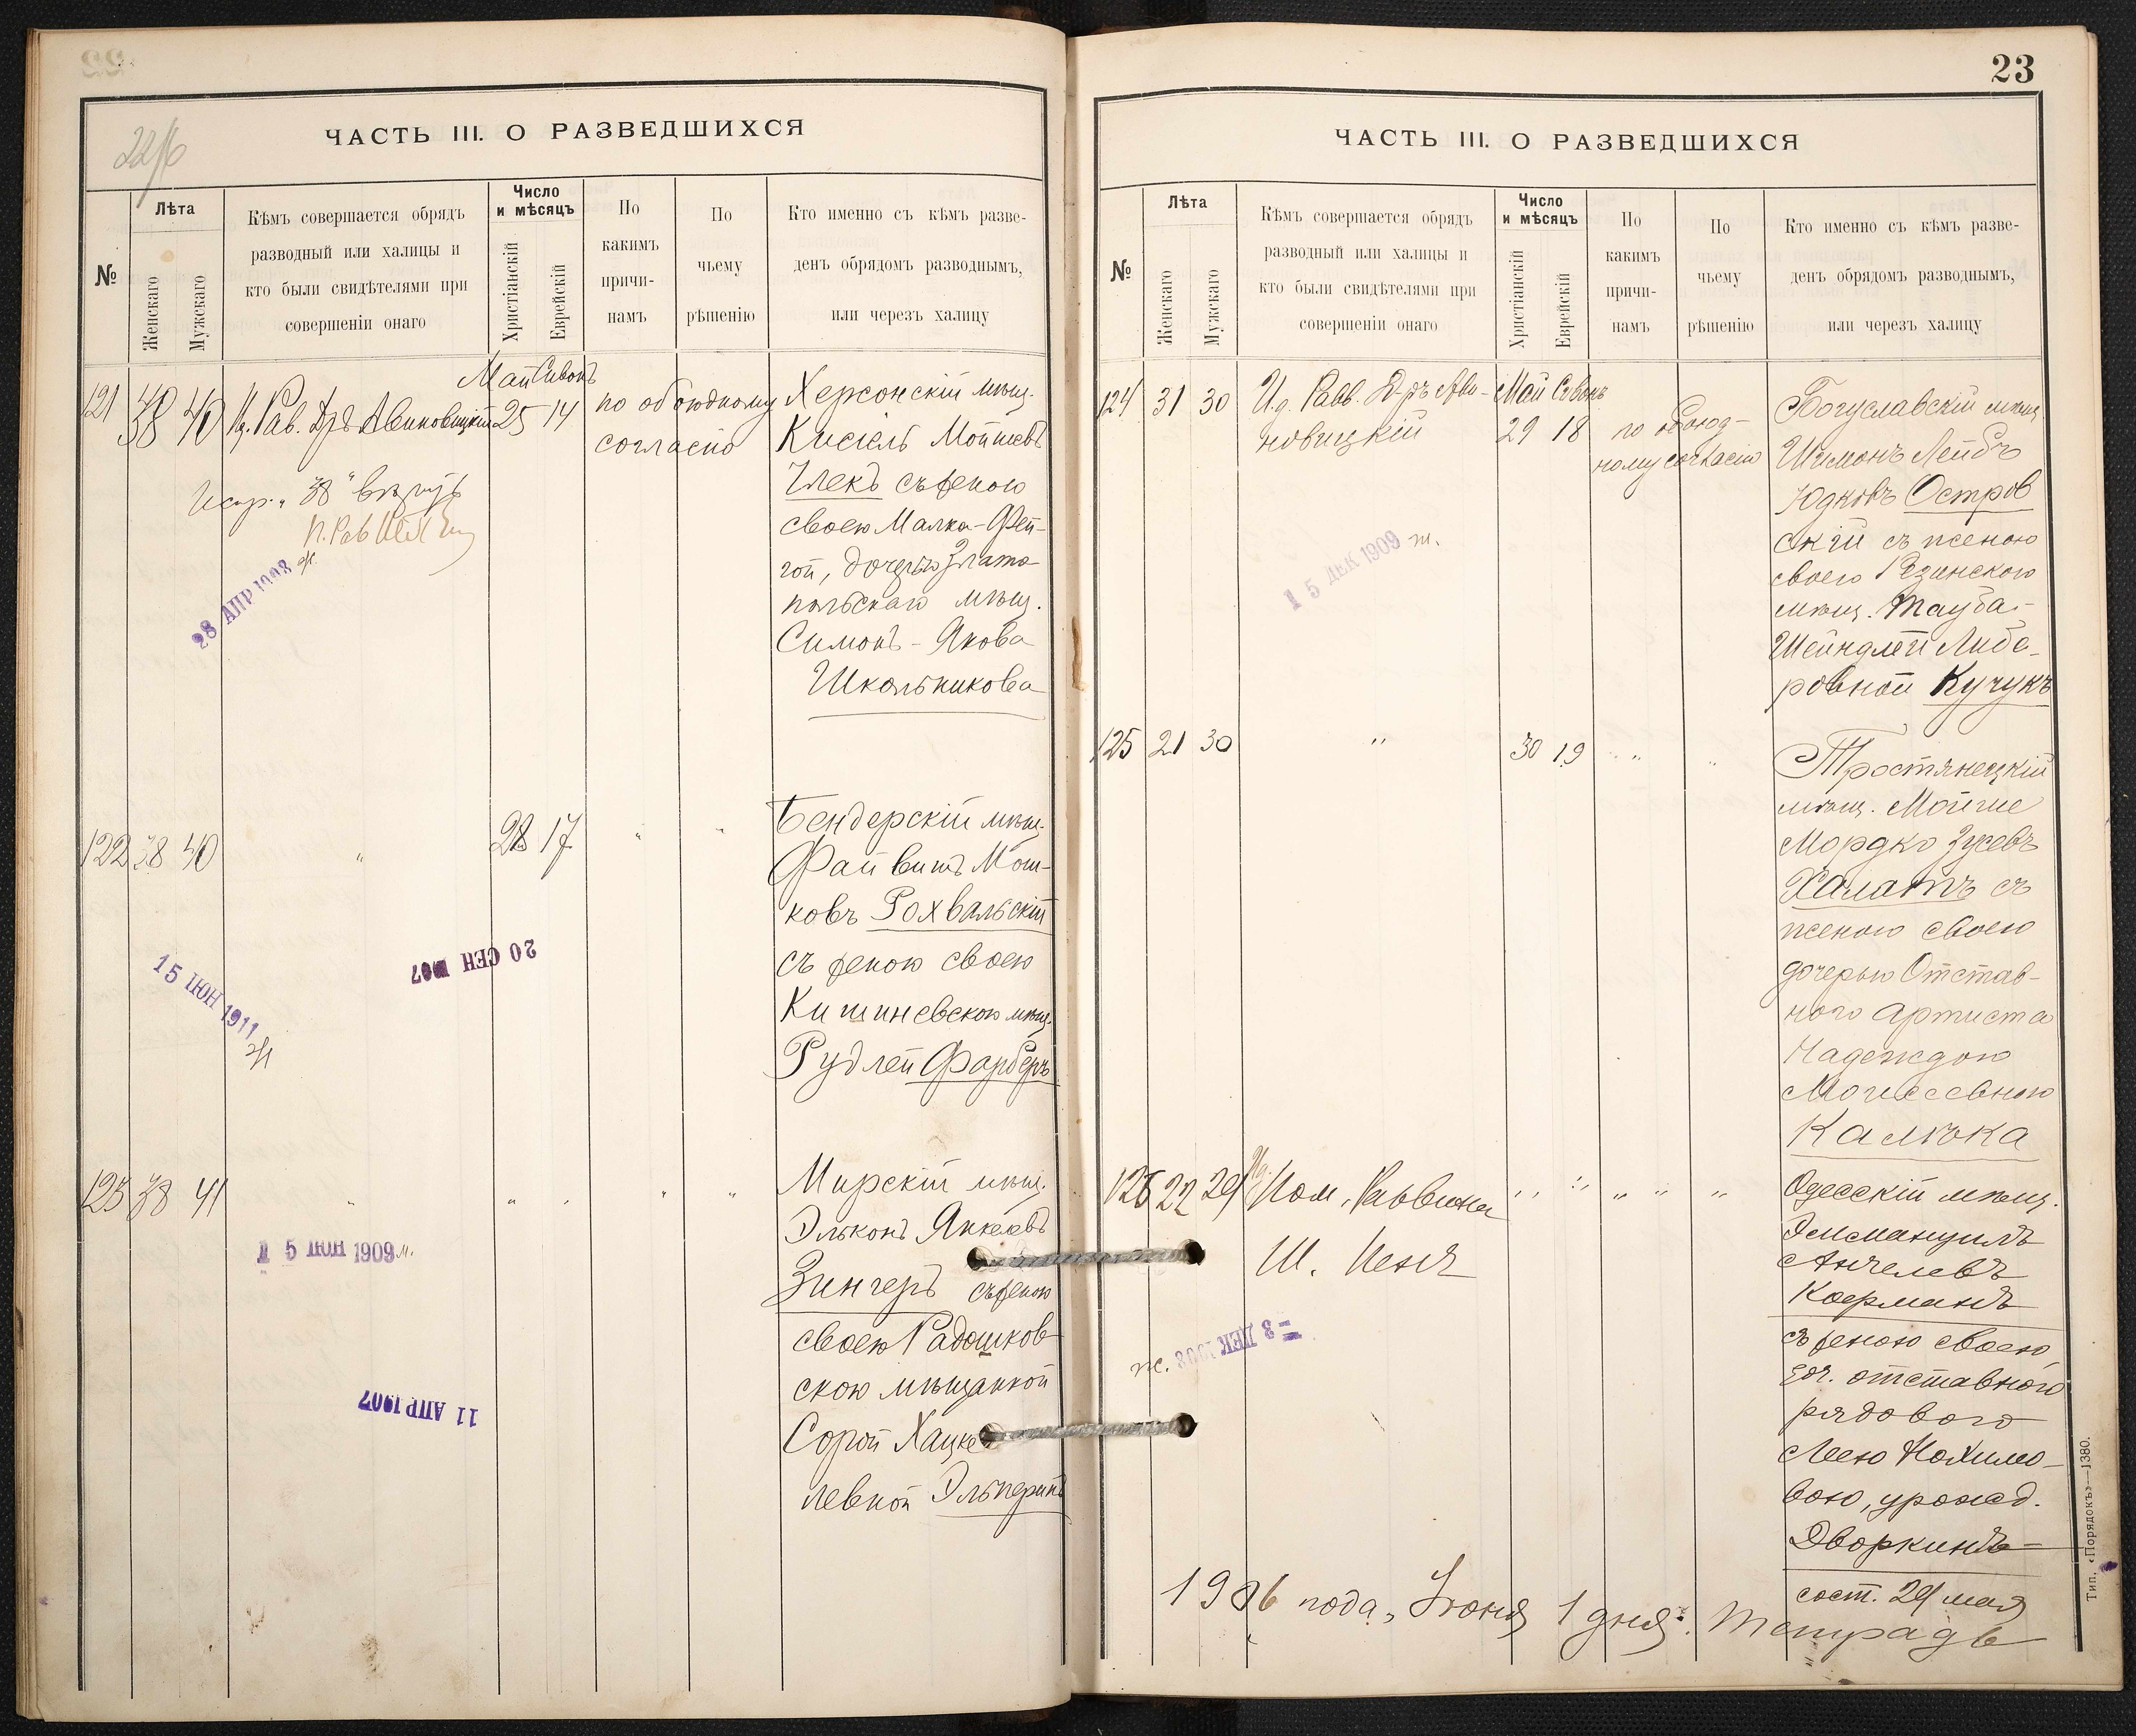 22/б
ЧАСТЬ III. О РАЗВЕДШИХСЯ
№
Лѣта
Женскаго
Мужскаго
Кѣмъ совершается обрядъ
разводный или халицы и
кто были свидѣтелями при
совершеніи онаго
Число
и мѣсяцъ
Христіанскій
Еврейскій
По
какимъ
причи-
намъ
По
чьему
рѣшенію
Кто именно съ кѣмъ разве-
денъ обрядомъ разводнымъ,
или черезъ халицу
Май Сивонъ
121 38 40 Авиновицкій 25 14
по обоюдному
согласію
Херсонскій мѣщ.
Кисіель Мошковъ
Улекъ съ женою
своею Малка-Фей-
гой, дочерью Злато-
польскаго мѣщ.
Симонъ-Якова
Школьникова
"38"
28 АПР 1908
122 38 40 " 28 17 " "
Бендерскій мѣщ.
Файвишъ Мош-
ковъ Рохвальскій
съ женою своею
Кишиневскою мѣщ.
Рудлей Фарберъ
20 СЕН 1907
15 ІЮН 1911
123 38 41 " " " " "
Мирскій мѣщ.
Эльконъ Янкелевъ
Зингеръ съ женою
своею Радошков-
скою мѣщанкой
Сорой Хацке
левной Эльперинъ
1 5 ІЮН 1909 м.
11 АПР 1907
23
ЧАСТЬ III. О РАЗВЕДШИХСЯ
№
Лѣта
Женскаго
Мужскаго
Кѣмъ совершается обрядъ
разводный или халицы и
кто были свидѣтелями при
совершеніи онаго
Число
и мѣсяцъ
Христіанскій
Еврейскій
По
какимъ
причи-
намъ
По
чьему
рѣшенію
Кто именно съ кѣмъ разве-
денъ обрядомъ разводнымъ,
или черезъ халицу
124 31 30
И.д. Равв. Д-ръ Ави-
новицкій
Май Сивонъ
29 18
по обоюд-
ному согласію
Богуславскій мѣщ.
Шимонъ Лейбъ
Юдковъ Остров
скій съ женою
своею Резинскою
мѣщ. Тауба-
Шейндлей Либе-
ровной Кучукъ
1 5 ДЕК 1909 ж.
125 21 30 " 30 19 " "
Тростянецкій
мѣщ. Мойше
Мордко Зусевъ
Халатъ съ
женою своею
дочерью Отстав-
ного Артиста
Надеждою
Моисеевною
Калюка
126 22 29 И.д. Пом. Раввина
Ш. Пенъ
" " " " "
Одесскій мѣщ.
Эммануилъ
Анчелевъ
Коерманъ
съ женою своею
доч. отставного
рядового
Леею Нохимо-
вою, урожд.
Дворкинъ
сост. 29 мая
ж. - 3 ДЕК 1908
1906 года, Іюня 1 дня. Тетрадь
Тип. «Порядокъ»—1380.